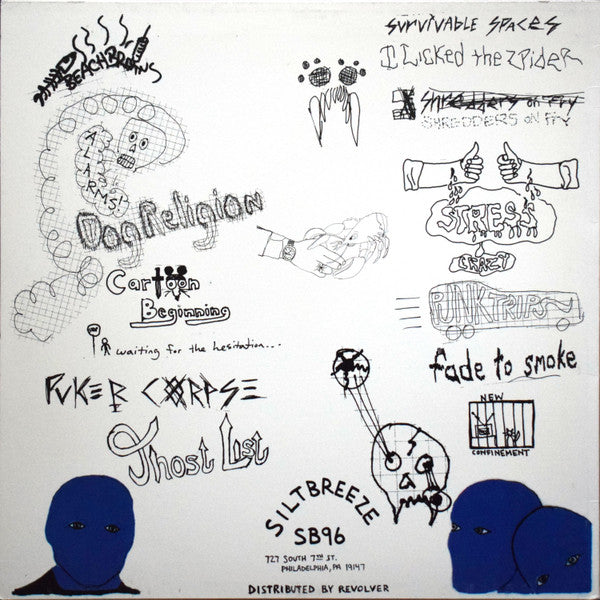 BEACH BRAINS
ALARMS!
Dog Religion
Cartoon
Beginning
waiting for the hesitation...
PUKER CORPSE
Ghost List
SURVIVABLE SPACES
I Licked the Zpider
Shredders on Fry
SHREDDERS ON FRY
STRESS
CRAZY
PUNK TRIPS
fade to smoke
NEW
CONFINEMENT
SILTBREEZE
SB96
727 SOUTH 7TH ST.
PHILADELPHIA, PA 19147
DISTRIBUTED BY REVOLVER